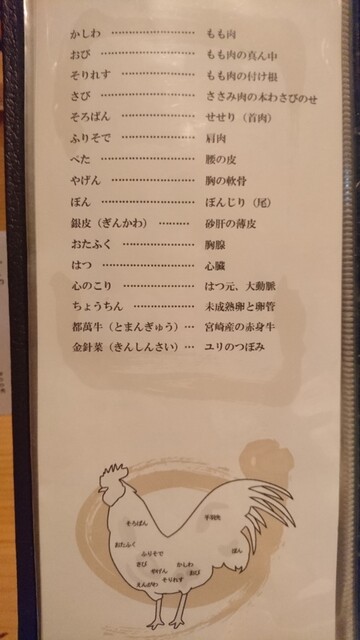 かしわ ……………………… もも肉
おび ……………………… もも肉の真ん中
そりれす ……………………… もも肉の付け根
さび ……………………… ささみ肉の本わさびのせ
そろばん ……………………… せせり（首肉）
ふりそで ……………………… 肩肉
べた ……………………… 腰の皮
やげん ……………………… 胸の軟骨
ぼん ……………………… ぼんじり（尾）
銀皮（ぎんかわ） ……… 砂肝の薄皮
おたふく ……………………… 胸腺
はつ ……………………… 心臓
心のこり ……………………… はつ元、大動脈
ちょうちん ……………………… 未成熟卵と卵管
都萬牛（とまんぎゅう） … 宮崎産の赤身牛
金針菜（きんしんさい） … ユリのつぼみ
そろばん
手羽先
おたふく
ふりそで
ぼん
さび
かしわ
やげん
おび
えんがわ
そりれす